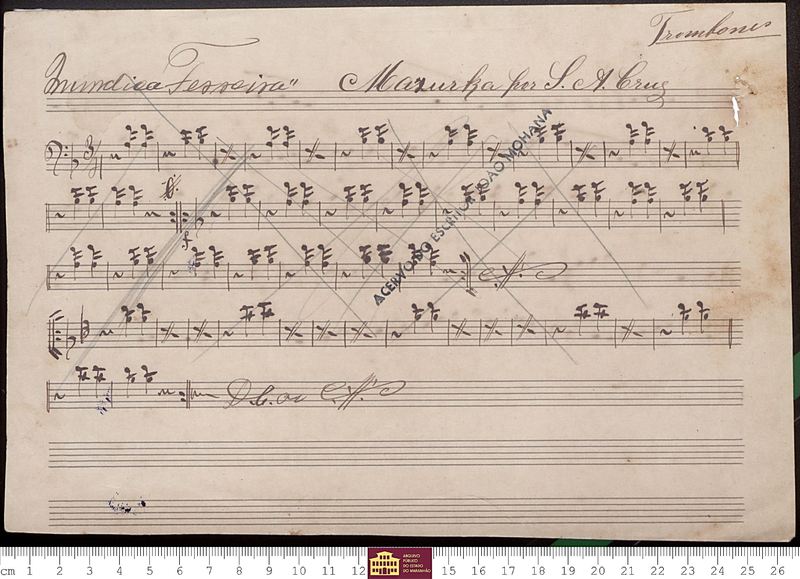 Trombones
Mundica Ferreira" Mazurka por S. A. Cruz
ACERVO DO ESCRITOR JOÃO MOHANA
D.C. ao
cm 1 2 3 4 5 6 7 8 9 10 11 12
ARQUIVO
PÚBLICO
DO ESTADO
DO MARANHÃO
1 15 16 17 18 19 20 21 22 23 24 25 26